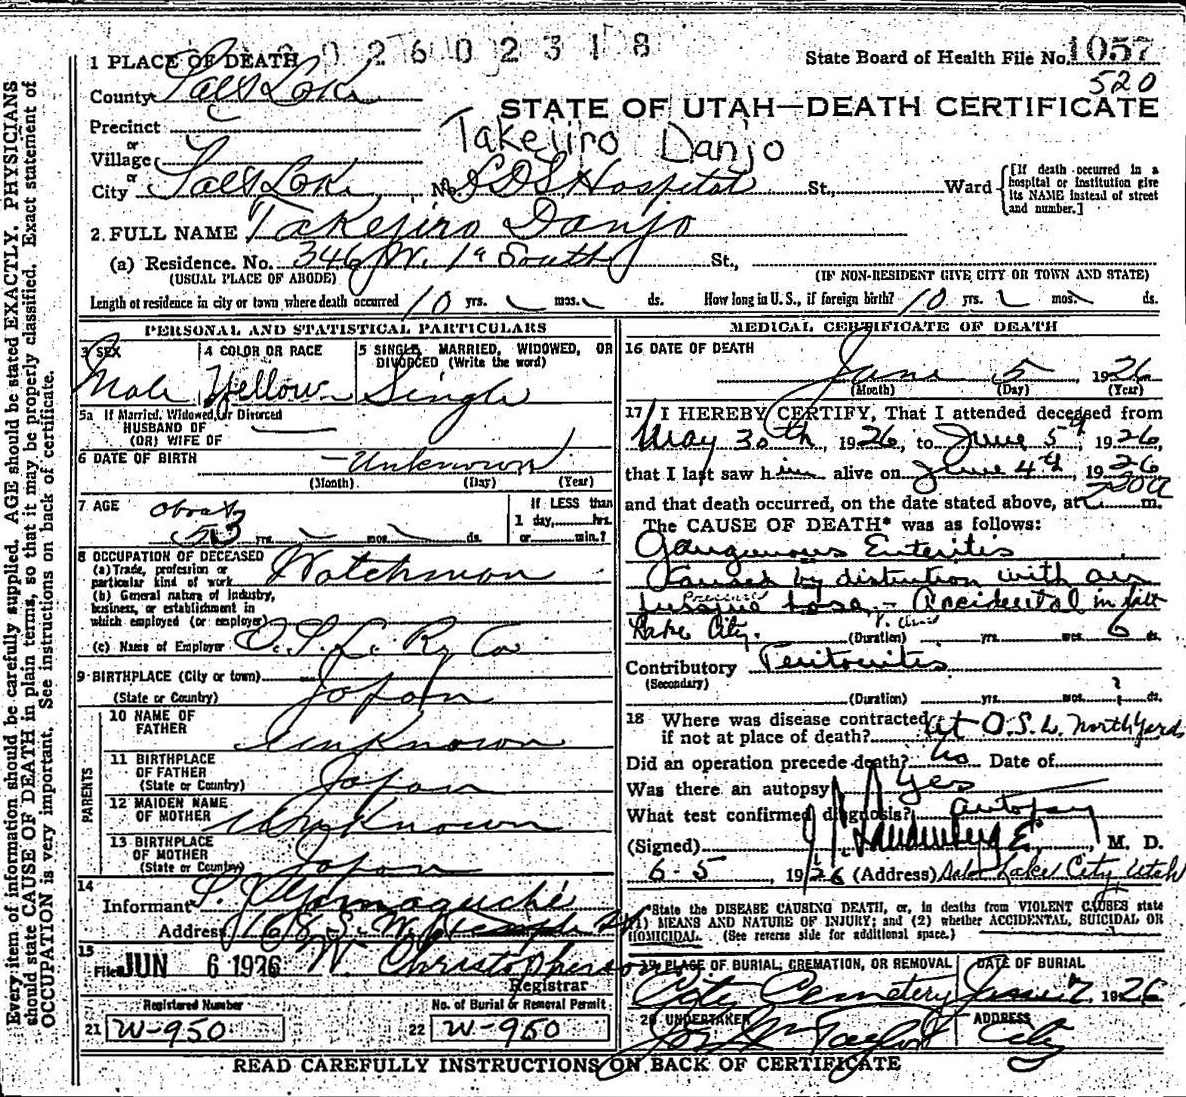 0 2 6 0 2 3 1 8
1 PLACE OF DEATH
State Board of Health File No. 1057
520
County Salt Lake
STATE OF UTAH—DEATH CERTIFICATE
Precinct
or
Takejiro Danjo
Village
or
City Salt Lake, No. LDS Hospital St., Ward
[If death occurred in a hospital or institution give its NAME instead of street and number.]
2. FULL NAME Takejiro Danjo
(a) Residence. No. 346 W. 1st South St.,
(USUAL PLACE OF ABODE)
(IF NON-RESIDENT GIVE CITY OR TOWN AND STATE)
Length of residence in city or town where death occurred 10 yrs. mos. ds.
How long in U. S., if foreign birth? 10 yrs. mos. ds.
PERSONAL AND STATISTICAL PARTICULARS
3 SEX
Male
4 COLOR OR RACE
Yellow
5 SINGLE, MARRIED, WIDOWED, OR DIVORCED (Write the word)
Single
5a If Married, Widowed, or Divorced
HUSBAND OF
(OR) WIFE OF
6 DATE OF BIRTH
Unknown
(Month) (Day) (Year)
7 AGE
about
53 yrs. mos. ds.
If LESS than
1 day, hrs.
or min.?
8 OCCUPATION OF DECEASED
(a) Trade, profession or particular kind of work
Watchman
(b) General nature of industry, business, or establishment in which employed (or employer)
(c) Name of Employer O. S. L. Ry Co
9 BIRTHPLACE (City or town)
(State or Country)
Japan
PARENTS
10 NAME OF FATHER
Unknown
11 BIRTHPLACE OF FATHER
(State or Country)
Japan
12 MAIDEN NAME OF MOTHER
Unknown
13 BIRTHPLACE OF MOTHER
(State or Country)
Japan
14
Informant Yamaguchi
Address 168 S. W. Temple St
15
Filed JUN 6 1926 W. Christopherson
Registrar
Registered Number
21 W-950
No. of Burial or Removal Permit
22 W-950
MEDICAL CERTIFICATE OF DEATH
16 DATE OF DEATH
June 5, 1926
(Month) (Day) (Year)
17 I HEREBY CERTIFY, That I attended deceased from
May 30th, 1926, to June 5th, 1926,
that I last saw him alive on June 4th, 1926
and that death occurred, on the date stated above, at 2:20 a m.
The CAUSE OF DEATH* was as follows:
Gangrenous Enteritis
Caused by distention with air
pressure hose, - Accidental in Salt
Lake City.
(Duration) yrs. mos. 6 ds.
Contributory Peritonitis
(Secondary)
(Duration) yrs. mos. ? ds.
18 Where was disease contracted
if not at place of death? At O.S.L. North Yards
Did an operation precede death? No Date of
Was there an autopsy? Yes
What test confirmed diagnosis? autopsy
(Signed) , M. D.
6-5, 1926 (Address) Salt Lake City Utah
*State the DISEASE CAUSING DEATH, or, in deaths from VIOLENT CAUSES state
(1) MEANS AND NATURE OF INJURY; and (2) whether ACCIDENTAL, SUICIDAL OR
HOMICIDAL. (See reverse side for additional space.)
19 PLACE OF BURIAL, CREMATION, OR REMOVAL
City Cemetery
DATE OF BURIAL
June 7, 1926
20 UNDERTAKER
Taylor
ADDRESS
City
READ CAREFULLY INSTRUCTIONS ON BACK OF CERTIFICATE
Every item of information should be carefully supplied. AGE should be stated EXACTLY. PHYSICIANS
should state CAUSE OF DEATH in plain terms, so that it may be properly classified. Exact statement of
OCCUPATION is very important. See instructions on back of certificate.